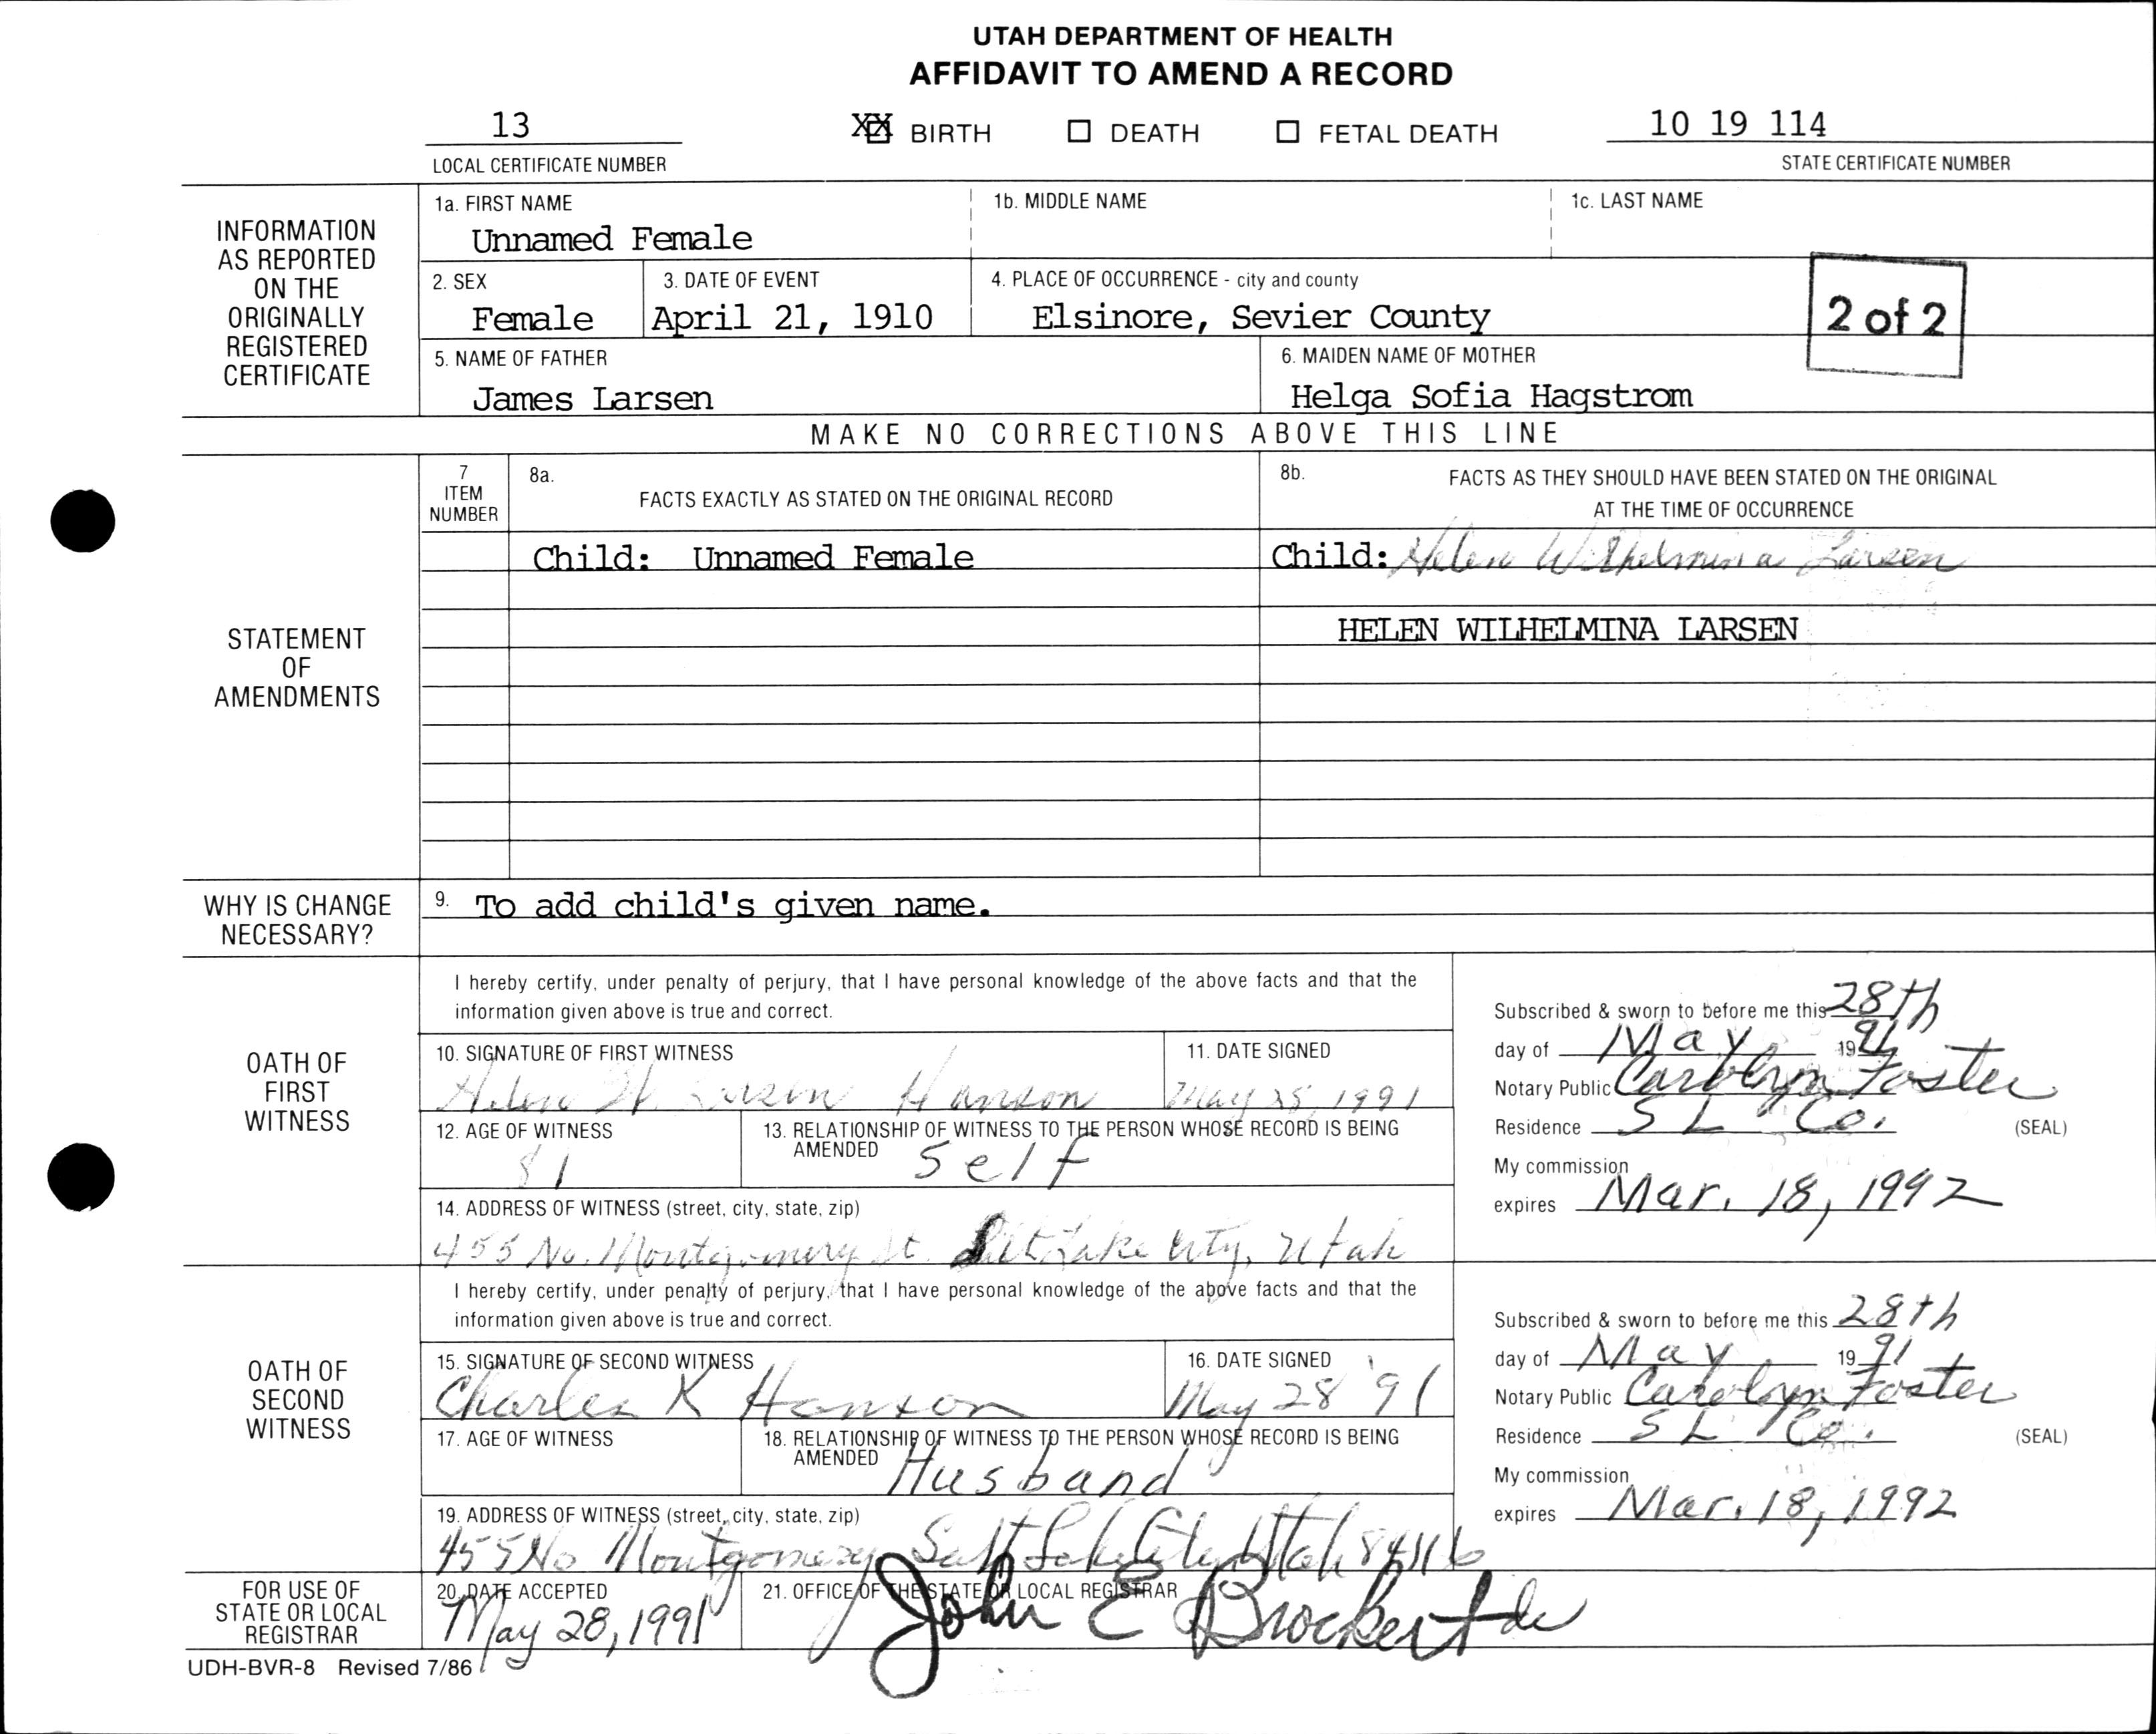 UTAH DEPARTMENT OF HEALTH
AFFIDAVIT TO AMEND A RECORD
13 XX BIRTH DEATH FETAL DEATH 10 19 114
LOCAL CERTIFICATE NUMBER STATE CERTIFICATE NUMBER
INFORMATION
AS REPORTED
ON THE
ORIGINALLY
REGISTERED
CERTIFICATE
1a. FIRST NAME 1b. MIDDLE NAME 1c. LAST NAME
Unnamed Female
2. SEX 3. DATE OF EVENT 4. PLACE OF OCCURRENCE - city and county
Female April 21, 1910 Elsinore, Sevier County
2 of 2
5. NAME OF FATHER 6. MAIDEN NAME OF MOTHER
James Larsen Helga Sofia Hagstrom
MAKE NO CORRECTIONS ABOVE THIS LINE
STATEMENT
OF
AMENDMENTS
7
ITEM
NUMBER
8a.
FACTS EXACTLY AS STATED ON THE ORIGINAL RECORD
8b. FACTS AS THEY SHOULD HAVE BEEN STATED ON THE ORIGINAL
AT THE TIME OF OCCURRENCE
Child: Unnamed Female Child: Helen Wilhelmina Larsen
HELEN WILHELMINA LARSEN
WHY IS CHANGE
NECESSARY?
9. To add child's given name.
OATH OF
FIRST
WITNESS
I hereby certify, under penalty of perjury, that I have personal knowledge of the above facts and that the
information given above is true and correct.
10. SIGNATURE OF FIRST WITNESS 11. DATE SIGNED
Helen W. Larsen Hanson May 28, 1991
12. AGE OF WITNESS 13. RELATIONSHIP OF WITNESS TO THE PERSON WHOSE RECORD IS BEING
AMENDED
81 Self
14. ADDRESS OF WITNESS (street, city, state, zip)
455 No. Montgomery St. Salt Lake City, Utah
Subscribed & sworn to before me this 28th
day of May 1991
Notary Public Carolyn Foster
Residence S L Co. (SEAL)
My commission
expires Mar. 18, 1992
OATH OF
SECOND
WITNESS
I hereby certify, under penalty of perjury, that I have personal knowledge of the above facts and that the
information given above is true and correct.
15. SIGNATURE OF SECOND WITNESS 16. DATE SIGNED
Charles K Hanson May 28 '91
17. AGE OF WITNESS 18. RELATIONSHIP OF WITNESS TO THE PERSON WHOSE RECORD IS BEING
AMENDED
Husband
19. ADDRESS OF WITNESS (street, city, state, zip)
455 No Montgomery Salt Lake City Utah 84116
Subscribed & sworn to before me this 28th
day of May 1991
Notary Public Carolyn Foster
Residence S L Co. (SEAL)
My commission
expires Mar. 18, 1992
FOR USE OF
STATE OR LOCAL
REGISTRAR
20. DATE ACCEPTED 21. OFFICE OF THE STATE OR LOCAL REGISTRAR
May 28, 1991 John E Brockert de
UDH-BVR-8 Revised 7/86